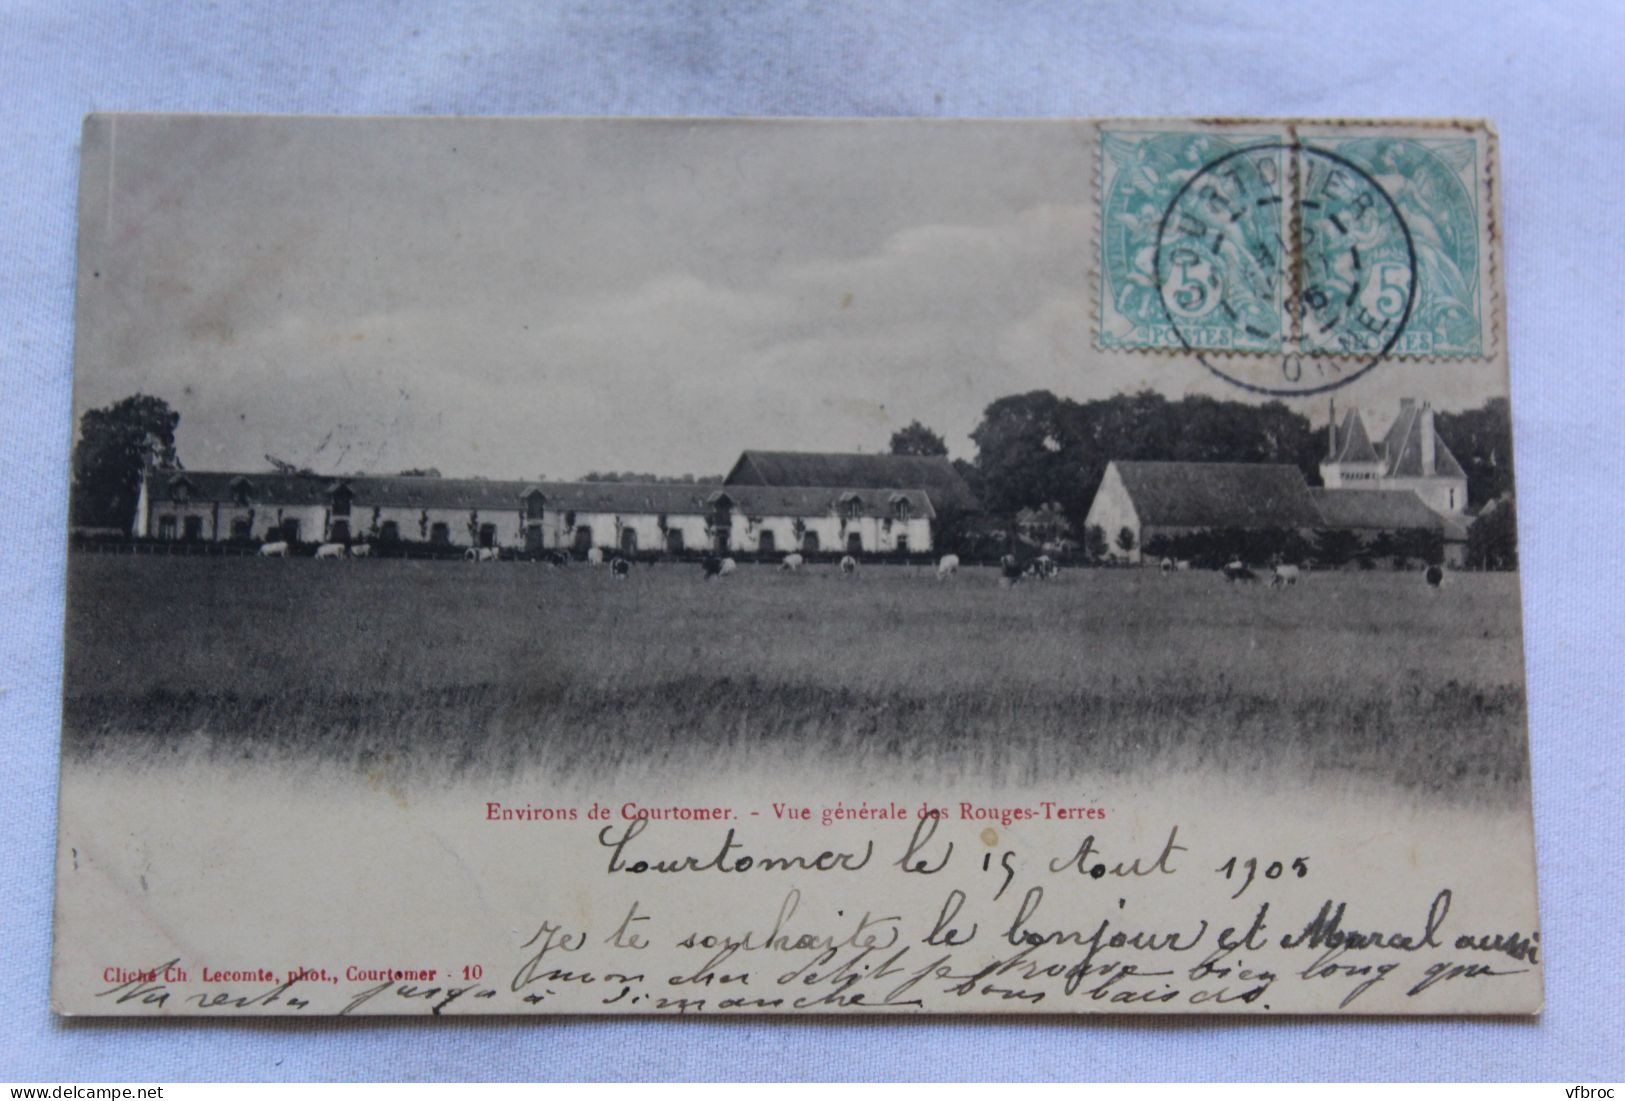 COURTOMER
ORNE
5
POSTES
5
POSTES
Environs de Courtomer. - Vue générale des Rouges-Terres
Courtomer le 15 Aout 1905
Je te souhaite le bonjour et Marcel aussi
Cliché Ch. Lecomte, phot., Courtomer - 10
mon cher petit je trouve bien long que
tu restes jusqu'a à Dimanche. bons baisers.
delcampe.net
vfbroc